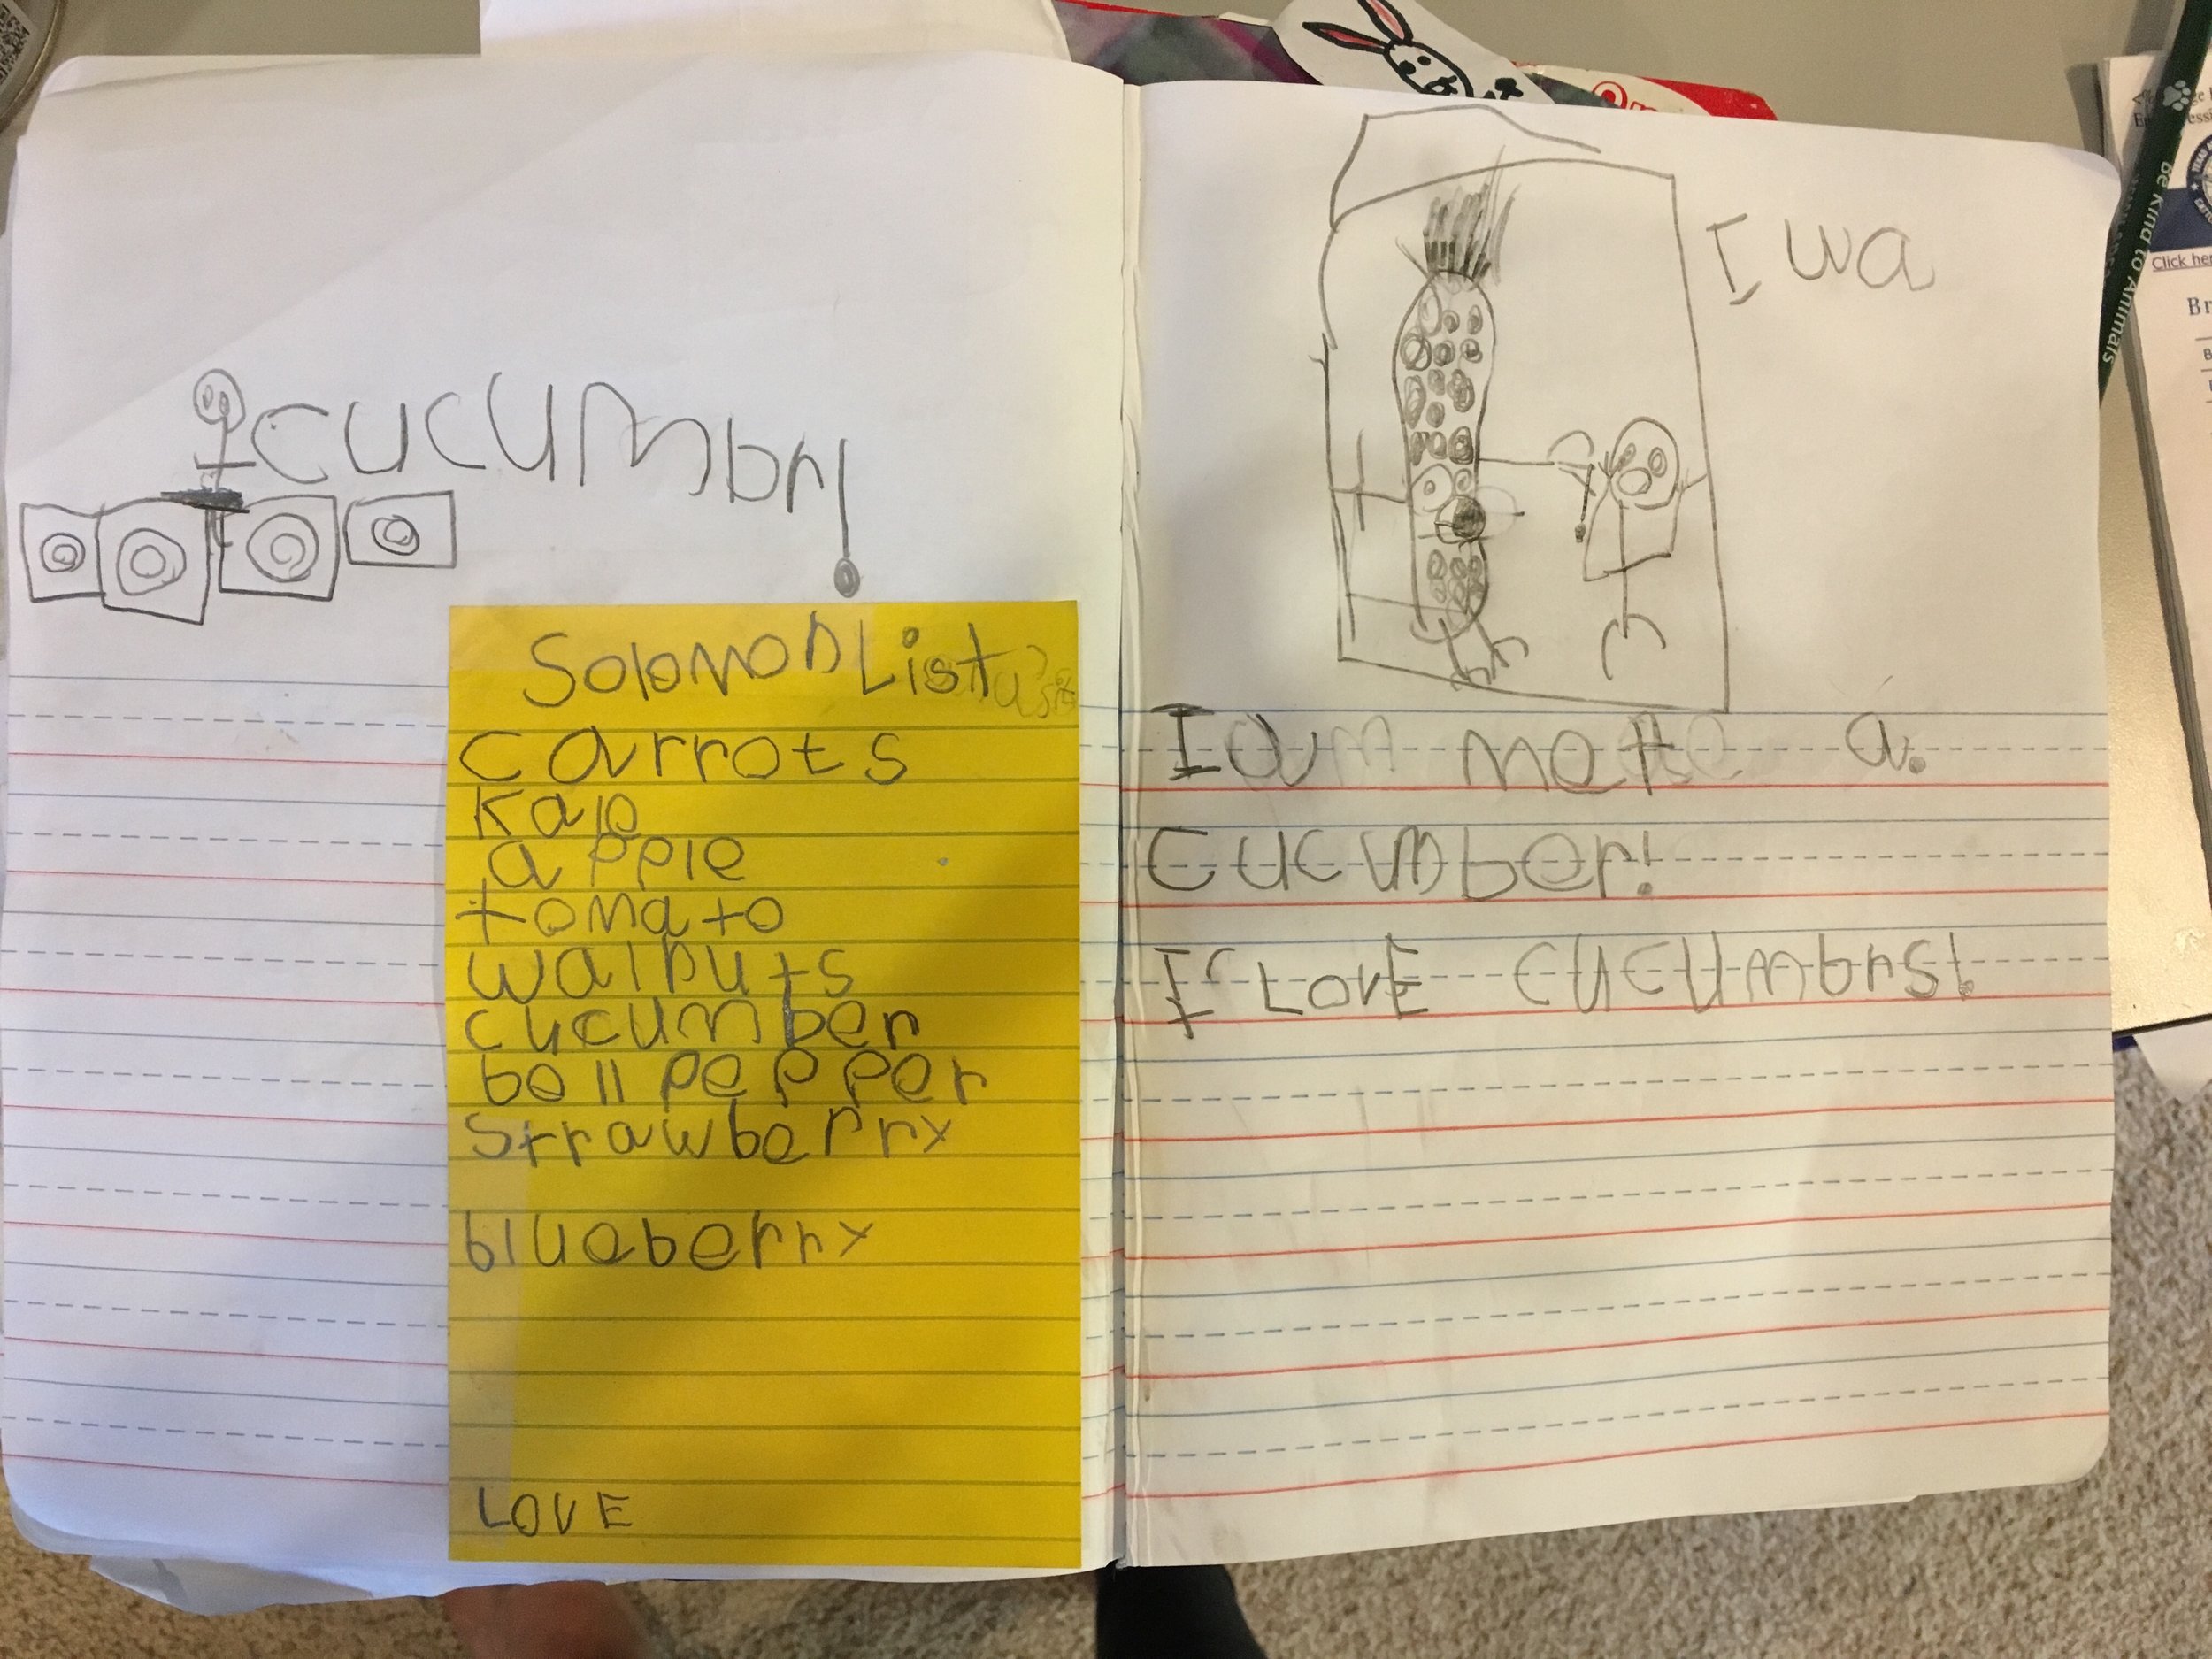 cucumbr!
Solomon List
carrots
Kale
apple
tomato
walnuts
cucumber
bell pepper
Strawberry
blueberry
LOVE
I wa
I am mette a.
cucumber!
I LOVE cucumbrs!
Be Kind to Animals
Click her
Br